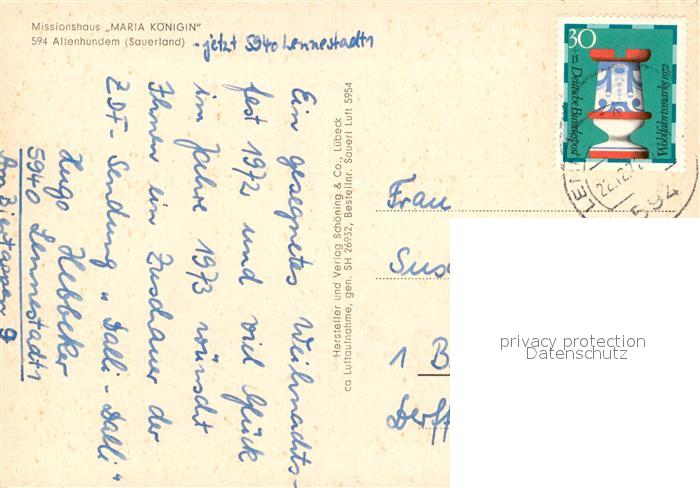 Missionshaus „MARIA KÖNIGIN"
594 Altenhundem (Sauerland)
- jetzt 5940 Lennestadt 1
Ein gesegnetes Weihnachts-
fest 1972 und viel Glück
im Jahre 1973 wünscht
Ihnen ein Zuschauer der
ZDF-Sendung „Dalli-Dalli"
Hugo Hebbeker
5940 Lennestadt 1
Am
Hersteller und Verlag Schöning & Co., Lübeck
ca Luftaufnahme, gen. SH 26932, Bestellnr. Sauerl Luft 5954
30
+15 Deutsche Bundespost
Wohlfahrtsmarke 1972
LEN
22.12.7
594
Frau
Sus
1 B
Derff
privacy protection
Datenschutz